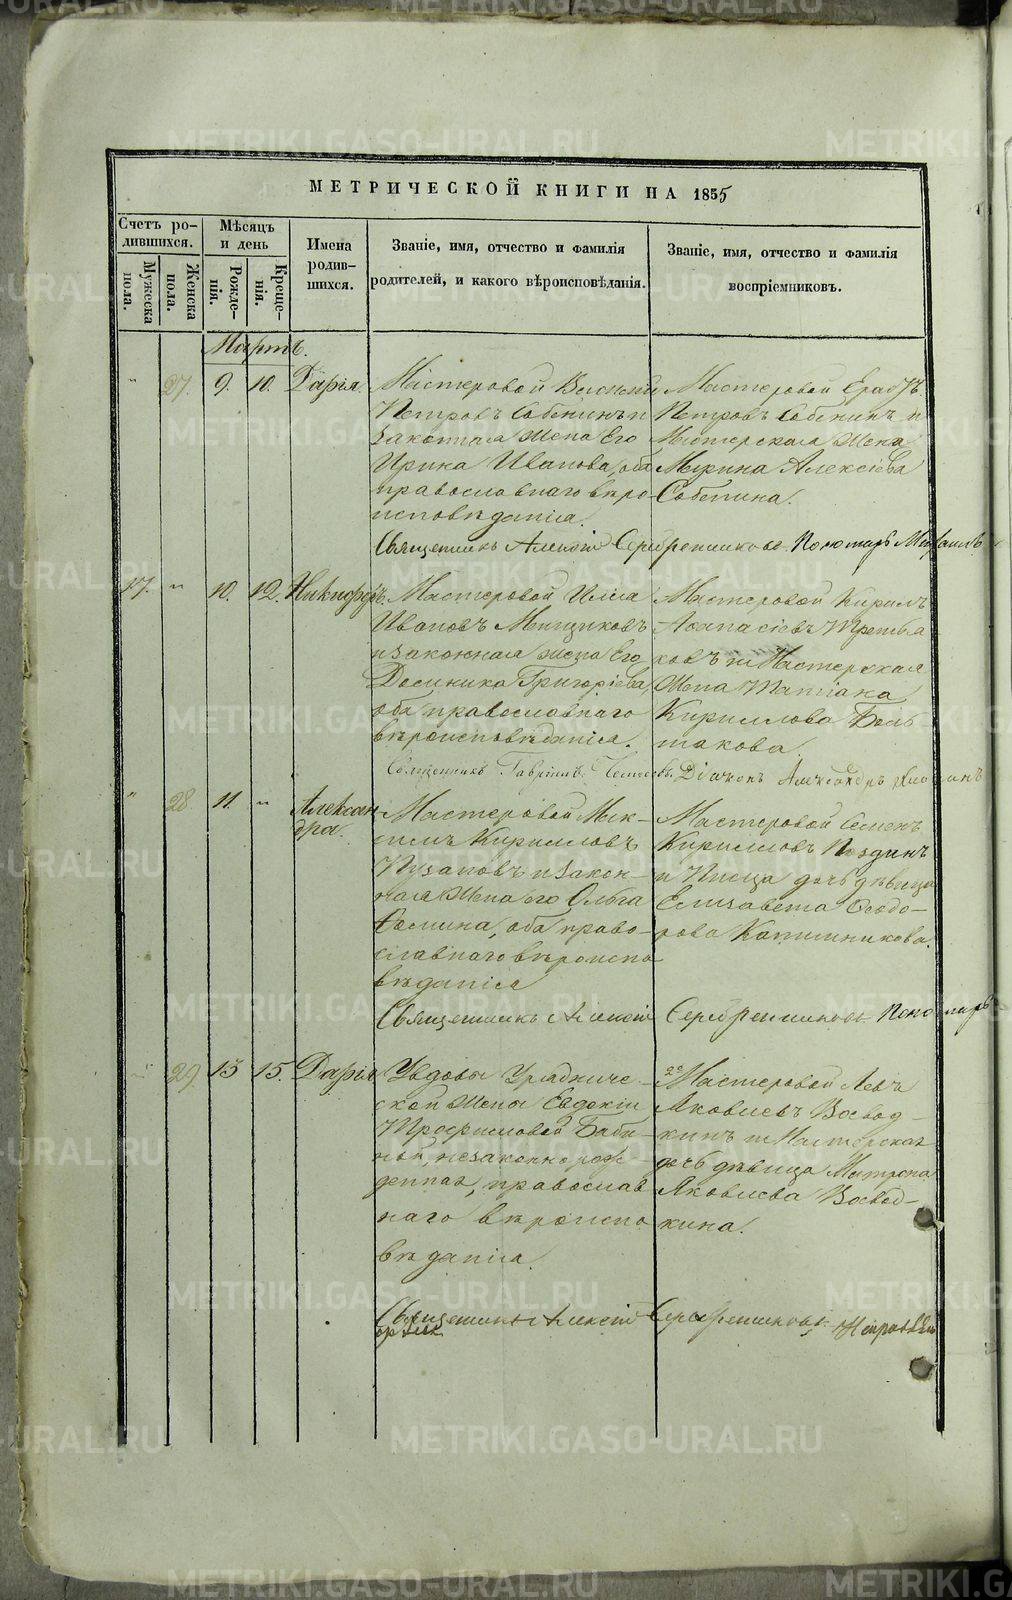 METRIKI.GASO-URAL.RU
МЕТРИЧЕСКОЙ КНИГИ НА 1855
Счетъ ро-
дившихся.
Мужеска
пола.
Женска
пола.
Мѣсяцъ
и день
Рожде-
нія.
Креще-
нія.
Имена
родив-
шихся.
Званіе, имя, отчество и фамилія
родителей, и какого вѣроисповѣданія.
Званіе, имя, отчество и фамилія
воспріемниковъ.
Мартъ.
" 27. 9. 10. Дарія.
Мастеровой Василій
Петровъ Собенинъ и
законная жена Его
Ирина Иванова, оба
православнаго вѣро-
исповѣданія.
Мастеровой
Петровъ Собенинъ и
Мастерская жена
Марина Алексіева
Собенина.
Священникъ Алексій Серебренниковъ. Пономарь
17. " 10. 12. Никифоръ.
Мастеровой Илія
Ивановъ
и законная жена Его
Григоріева,
оба православнаго
вѣроисповѣданія.
Мастеровой Кирилъ
Аѳанасіевъ Третья-
ковъ и Мастерская
жена Татіана
Кириллова
Священникъ Гавріилъ Діаконъ Александръ
" 28. 11. " Алексан-
дра.
Мастеровой Мак-
симъ Кирилловъ
Пузановъ и закон-
ная жена его Ольга
Ѳомина, оба право-
славнаго вѣроиспо-
вѣданія
Мастеровой Семенъ
Кирилловъ
и Писца дочь дѣвица
Елизавета Ѳеодо-
рова
Священникъ Алексій Серебренниковъ Пономарь
" 29. 13 15. Дарія
Вдовы Уряднической
жены Евдокіи
незаконнорож-
денная, православ-
наго вѣроиспо-
вѣданія.
Мастеровой Левъ
Яковлевъ Воевод-
кинъ и Мастерская
дочь дѣвица Матрона
Яковлева Воевод-
кина.
Священникъ Алексій Серебренниковъ